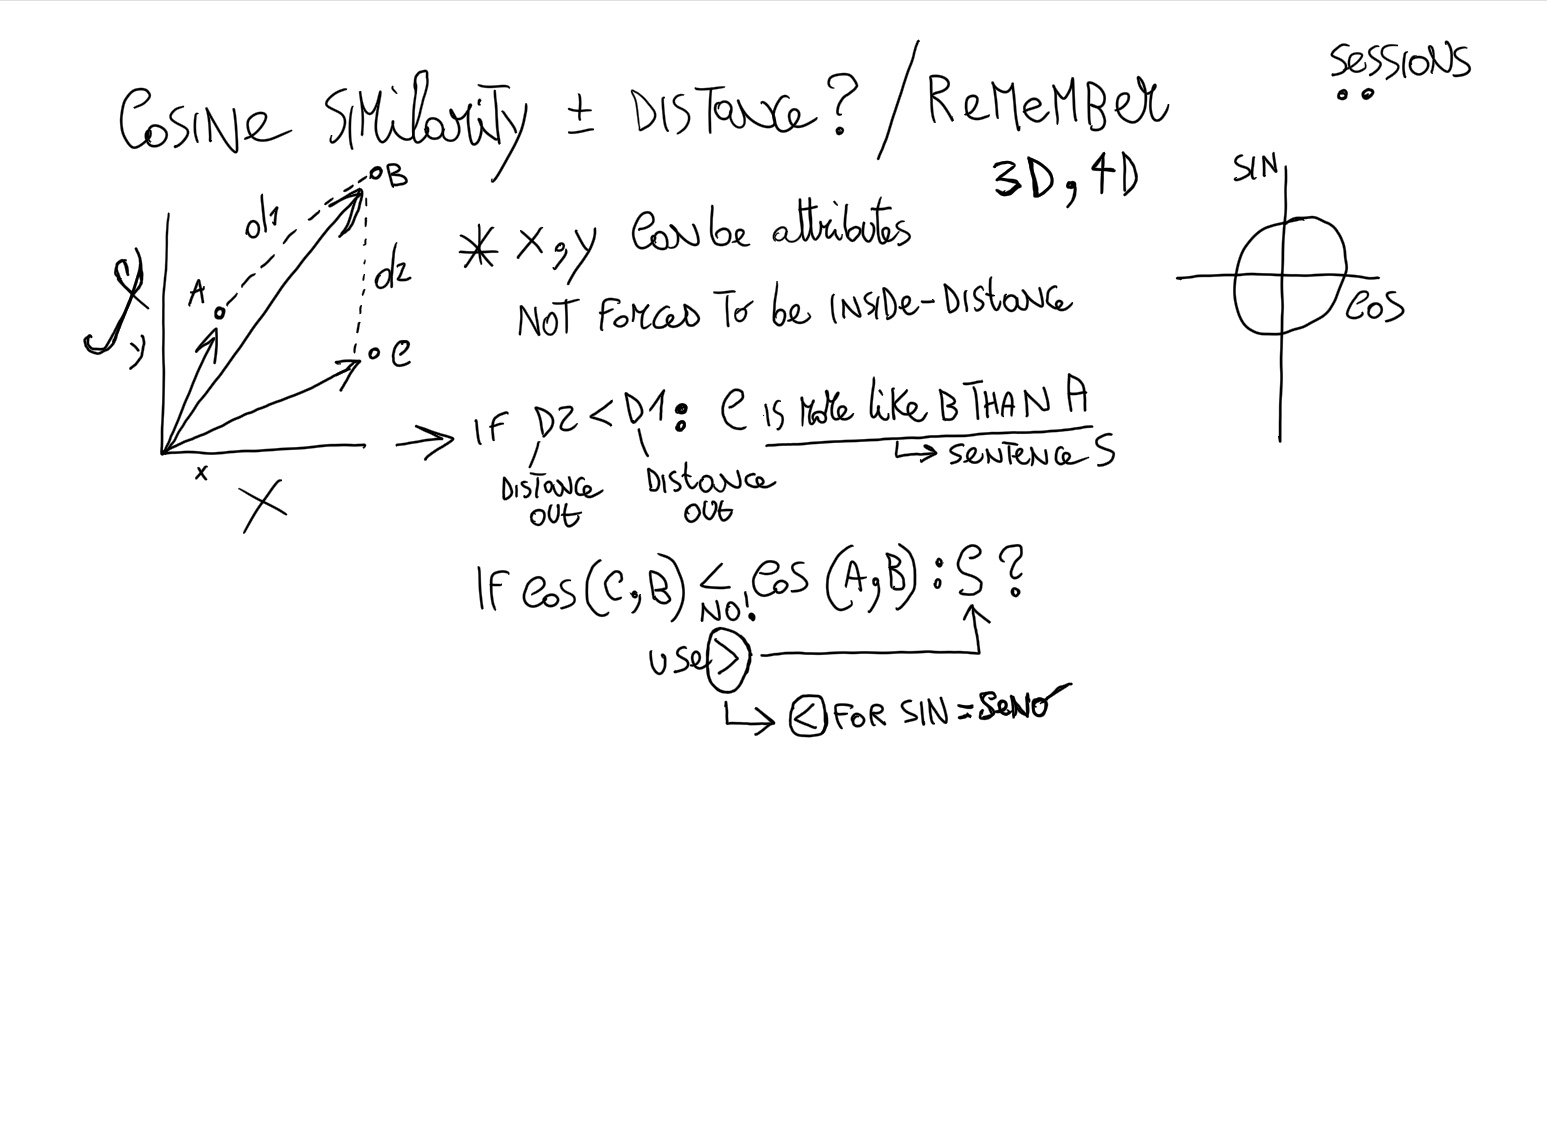 SESSIONS
COSINE SIMILARITY ± DISTANCE? / REMEMBER
3D, 4D
SIN
COS
B
d1
A
d2
C
y
x
X
* X, y CAN be attributes
NOT FORCED TO be INSIDE-DISTANCE
→ IF D2 < D1: C IS MORE like B THAN A
↳ SENTENCE S
DISTANCE OUT
DISTANCE OUT
IF COS (C, B) < COS (A, B) : S ?
NO!
USE >
↳ < FOR SIN = SENO